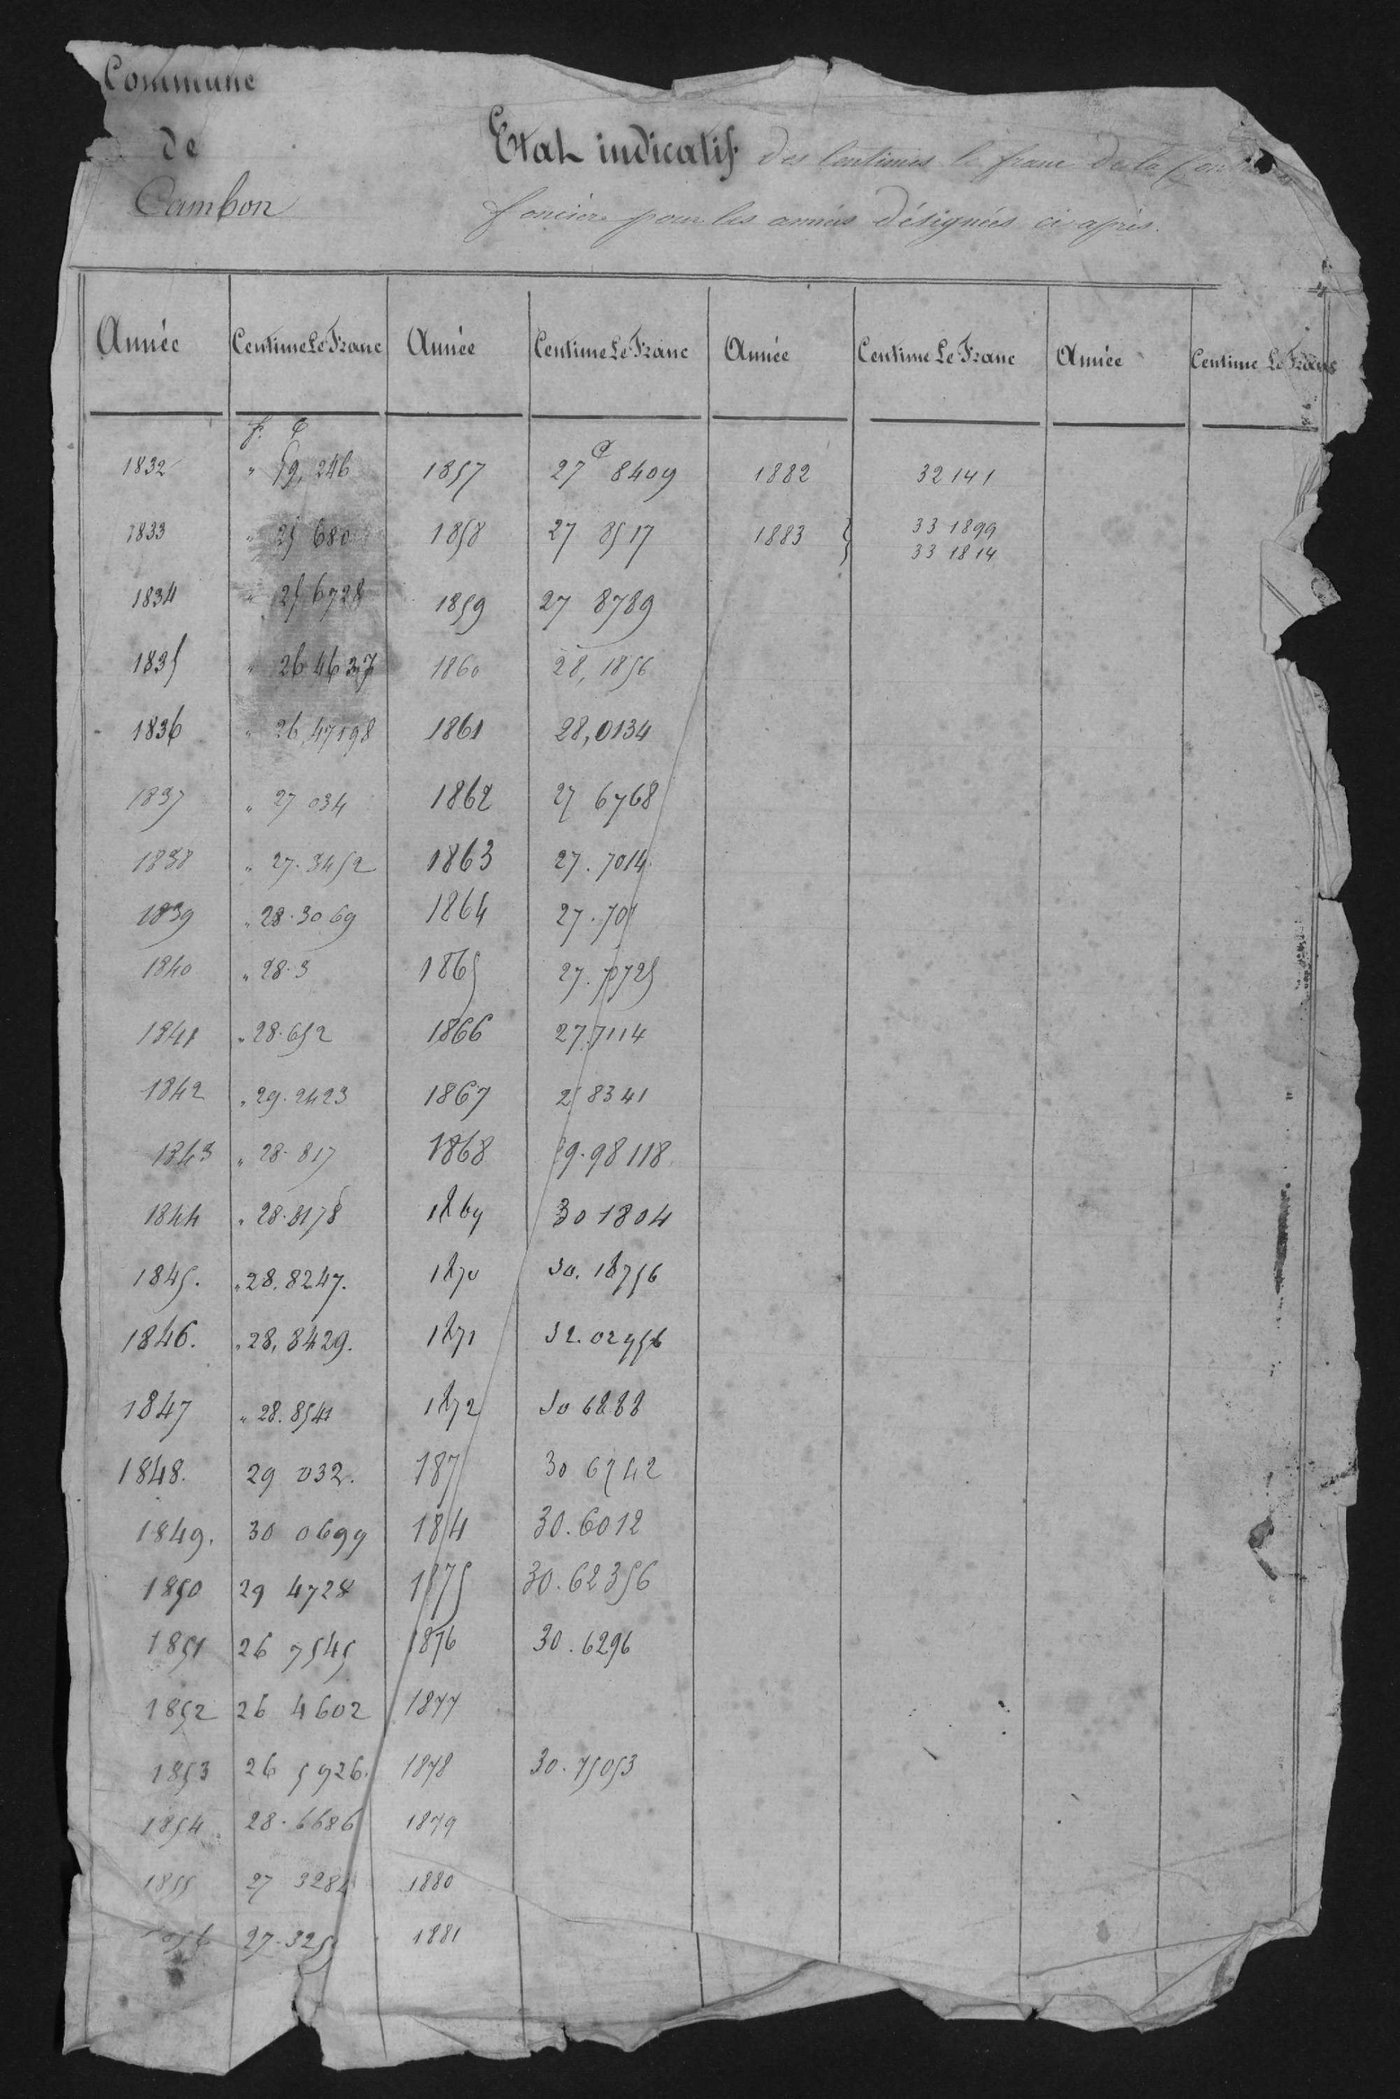 Commune
de
Cambon
Etat indicatif des Centimes le franc de la
foncière pour les années désignées ci après.
Année Centime Le Franc Année Centime Le Franc Année Centime Le Franc Année Centime Le Franc
f. c c
1832 " 59,246 1857 27 8409 1882 32 141
1833 " 25 680 1858 27 8517 1883 { 33 1899
33 1814
1834 " 25 6728 1859 27 8789
1835 " 26 4637 1860 28,1856
1836 " 26,47198 1861 28,0134
1837 " 27 034 1862 27 6768
1838 " 27.3452 1863 27.7014
1839 " 28.3069 1864 27.705
1840 " 28.3 1865 27.7725
1841 " 28.652 1866 27.7114
1842 " 29.2423 1867 25 8341
1843 " 28.817 1868 59.98118
1844 " 28.8178 1869 30 1804
1845. " 28.8247. 1870 30.18756
1846. " 28,8429. 1871 32.02956
1847 " 28.8541 1872 30 6888
1848. 29 032. 187 30 6742
1849. 30 0699 1874 30.6012
1850 29 4728 1875 30.62356
1851 26 7545 1876 30.6296
1852 26 4602 1877
1853 26 5926. 1878 30.75053
1854 28.6686 1879
1855 27 3284 1880
1856 27.325 1881